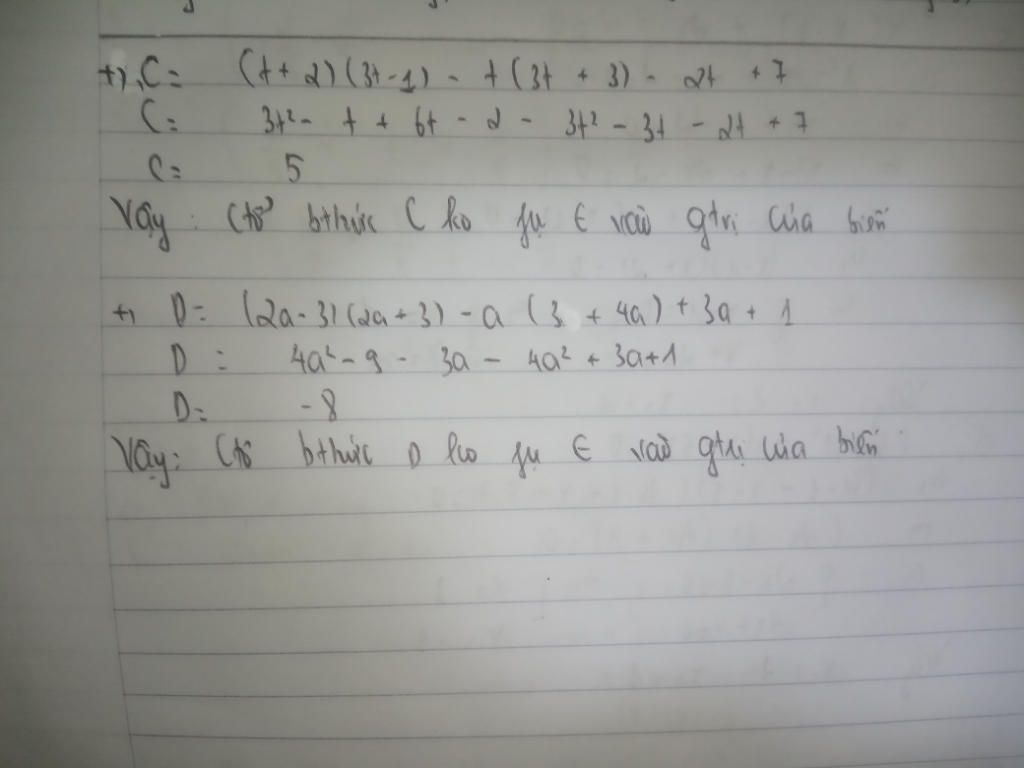 +) C = (t + 2)(3t - 1) - t(3t + 3) - 2t + 7
C = 3t² - t + 6t - 2 - 3t² - 3t - 2t + 7
C = 5
Vậy: Ctỏ bthức C ko fụ ∈ vào gtrị của biến
+) D = (2a - 3)(2a + 3) - a(3 + 4a) + 3a + 1
D = 4a² - 9 - 3a - 4a² + 3a + 1
D = -8
Vậy: Ctỏ bthức D ko fụ ∈ vào gtrị của biến